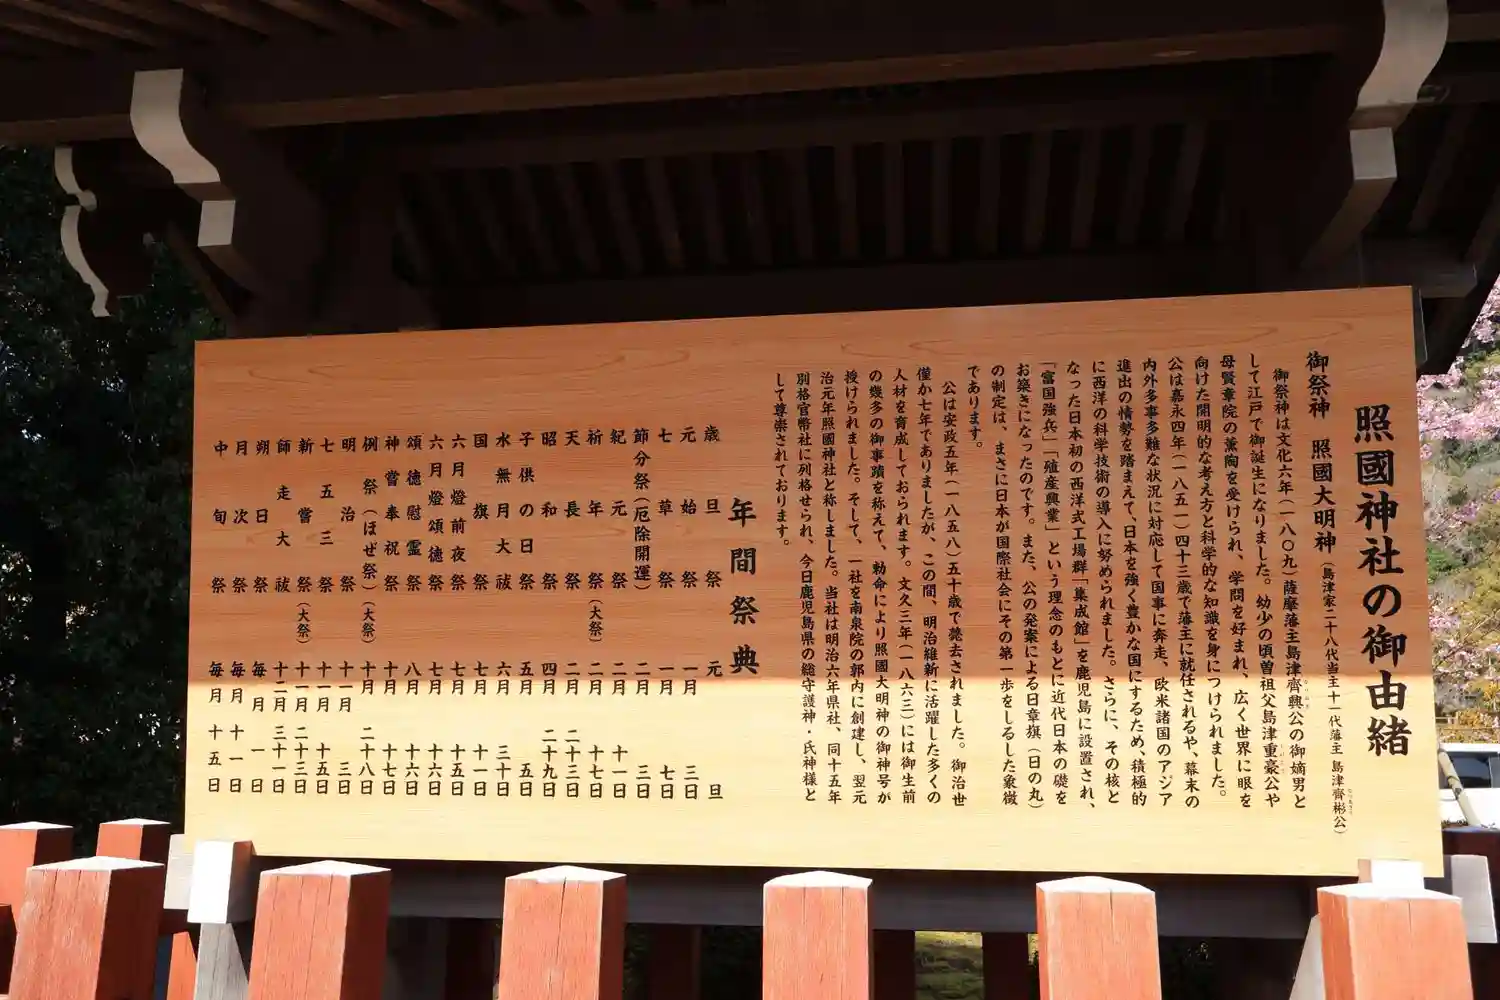 照國神社の御由緒
御祭神 照國大明神（島津家二十八代当主十一代藩主 島津齊彬公）
御祭神は文化六年（一八〇九）薩摩藩主島津齊興公の御嫡男と
して江戸で御誕生になりました。幼少の頃曽祖父島津重豪公や
母賢章院の薫陶を受けられ、学問を好まれ、広く世界に眼を
向けた開明的な考え方と科学的な知識を身につけられました。
公は嘉永四年（一八五一）四十三歳で藩主に就任されるや、幕末の
内外多事多難な状況に対応して国事に奔走、欧米諸国のアジア
進出の情勢を踏まえて、日本を強く豊かな国にするため、積極的
に西洋の科学技術の導入に努められました。さらに、その核と
なった日本初の西洋式工場群「集成館」を鹿児島に設置され、
「富国強兵」「殖産興業」という理念のもとに近代日本の礎を
お築きになったのです。また、公の発案による日章旗（日の丸）
の制定は、まさに日本が国際社会にその第一歩をしるした象徴
であります。
公は安政五年（一八五八）五十歳で薨去されました。御治世
僅か七年でありましたが、この間、明治維新に活躍した多くの
人材を育成しておられます。文久三年（一八六三）には御生前
の幾多の御事蹟を称えて、勅命により照國大明神の御神号が
授けられました。そして、一社を南泉院の郭内に創建し、翌元
治元年照國神社と称しました。当社は明治六年県社、同十五年
別格官幣社に列格せられ、今日鹿児島県の総守護神・氏神様と
して尊崇されております。
年間祭典
歳旦祭 元旦
元始祭 一月三日
七草祭 一月七日
節分祭（厄除開運） 二月三日
紀元祭 二月十一日
祈年祭（大祭） 二月十七日
天長祭 二月二十三日
昭和祭 四月二十九日
子供の日祭 五月五日
水無月大祓 六月三十日
国旗祭 七月十一日
六月燈前夜祭 七月十五日
六月燈頌徳祭 七月十六日
頌徳慰霊祭 八月十六日
神嘗奉祝祭 十月十七日
例祭（ほぜ祭）（大祭） 十月二十八日
明治祭 十一月三日
七五三祭 十一月十五日
新嘗祭（大祭） 十一月二十三日
師走大祓 十二月三十一日
朔日祭 毎月一日
月次祭 毎月十一日
中旬祭 毎月十五日